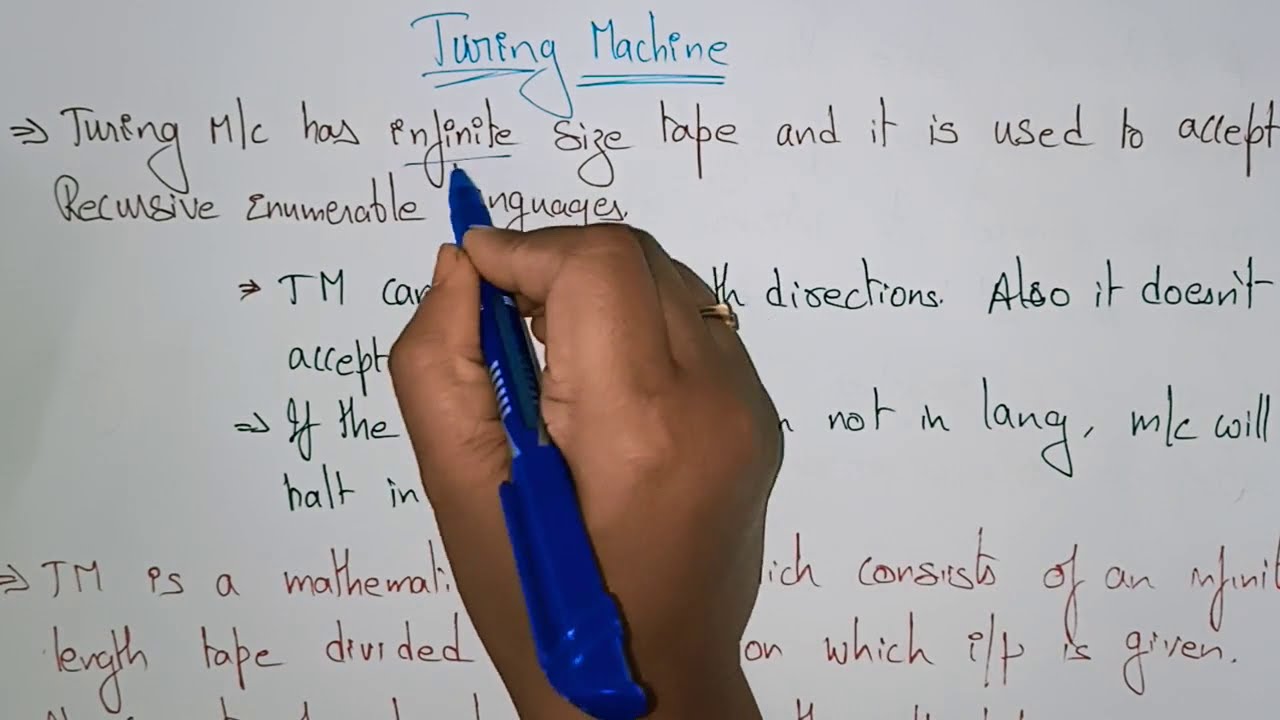 Turing Machine
⇒ Turing M/c has infinite size tape and it is used to accept
Recursive Enumerable nguages.
⇒ TM can th directions. Also it doesn't
accept
⇒ If the not in lang, m/c will
halt in
⇒ TM is a mathemati ich consists of an infinit
length tape divided on which i/p is given.